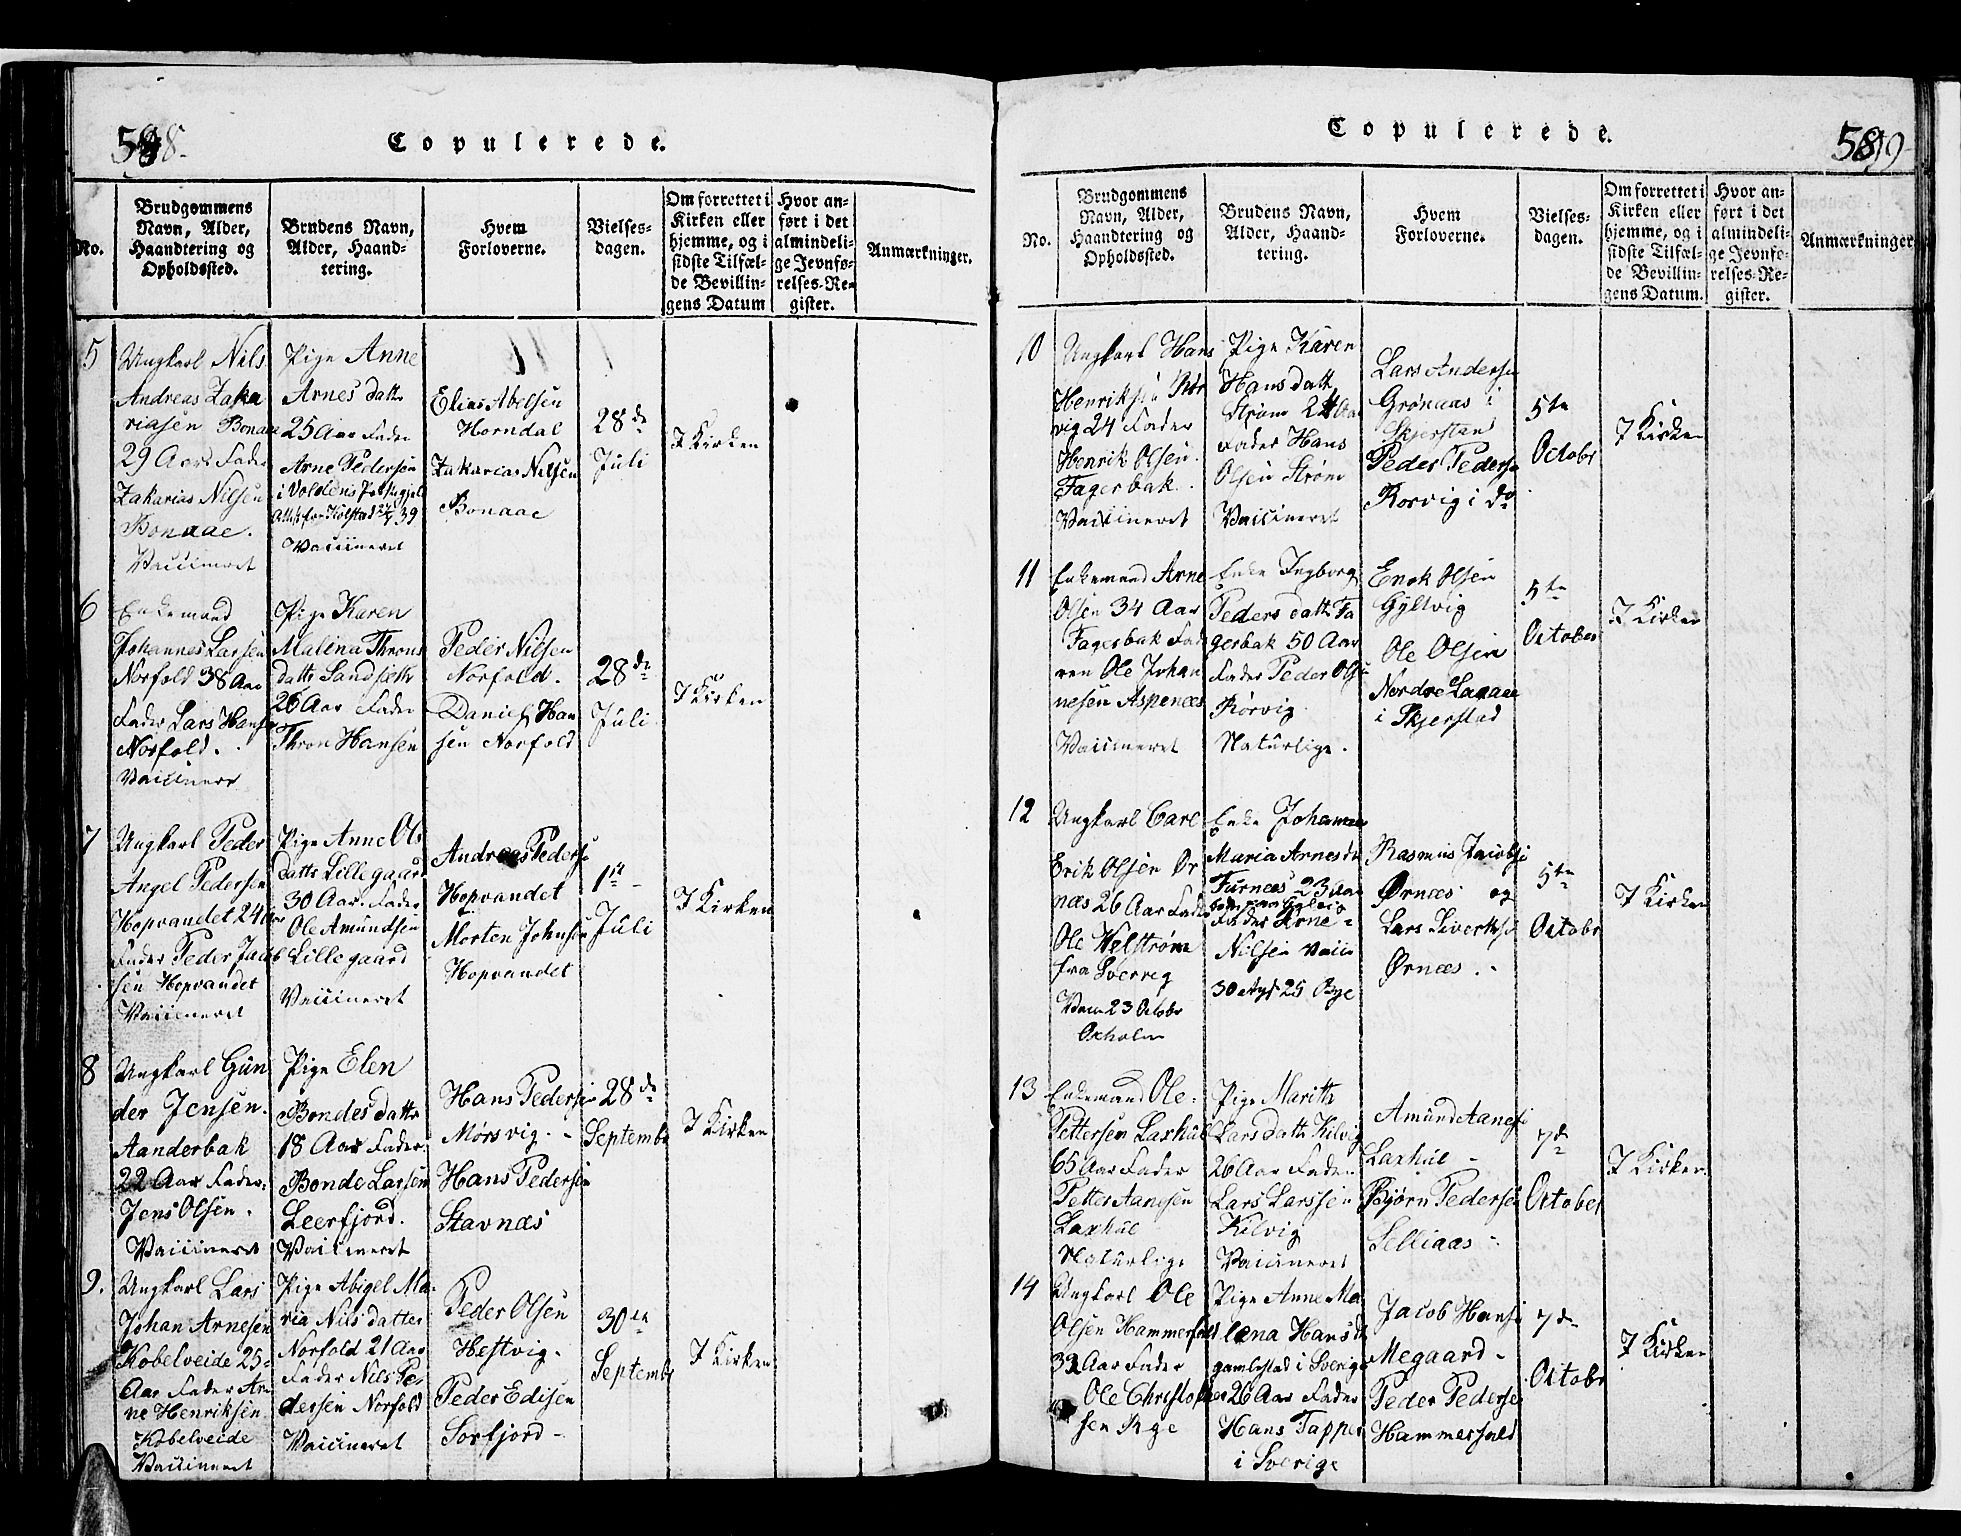 598.
Copulerede.
No.
Brudgommens
Navn, Alder,
Haandtering og
Opholdssted.
Brudens Navn,
Alder, Haand-
tering.
Hvem
Forloverne.
Vielses-
dagen.
Om forrettet i
Kirken eller
hjemme, og i
sidste Tilfæl-
de Bevillin-
gens Datum
Hvor an-
ført i det
almindeli-
ge Jevnfø-
relses-Re-
gister.
Anmærkninger.
5
Ungkarl Nils
Andreas Zaka
riasen Bonaae
29 Aar Fader
Zakarias Nilsen
Bonaae.
Vaccineret
Pige Anne
Arnes datt
25 Aar Fader
Arne Pedersen
i Voldens
39
Vaccineret
Elias Abelsen
Horndal
Zakarias Nilsen
Bonaae
28de
Juli
I Kirken
6
Enkemand
Johannes Larsen
Norfold 38 Aar
Fader Lars Hansen
Norfold.
Vaccinere
Pige Karen
Malena Throns
datts Landsæth
26 Aar Fader
Thron Hansen
Peder Nilsen
Norfold.
Daniel Han
sen Norfold
28de
Juli
I Kirken
7
Ungkarl Peder
Angel Pedersen
Hopvandet 24 Aar
Fader Peder Jacob
sen Hopvandet
Vaccineret
Pige Anne Ols
datts Lillegaard
30 Aar. Fader
Ole Amundsen
Lillegaard
Vaccineret
Andreas Peders
Hopvandet
Morten Johnsen
Hopvandet
1ste
Juli
I Kirken
8
Ungkarl Gun
der Jensen.
Aanderbak
22 Aar Fader.
Jens Olsen.
Vaccineret
Pige Elen
Bondes datts
18 Aar Fader.
Bonde Larsen
Leerfjord.
Vaccineret
Hans Pedersen
Mørsvig.
Hans Pedersen
Stavnæs
28de
Septembr
I Kirken
9.
Ungkarl Lars
Johan Arnesen
Kobelveide 25
Aar Fader Ar
ne Henriksen
Kobelveide
Vaccineret
Pige Abigel Ma
ria Nils datter
Norfold 21 Aar
Fader Nils Pe
dersen Norfold
Vaccineret
Peder Olsen
Hestvig.
Peder Edisen
Sørfjord
30te
Septembr
I Kirken
Copulerede.
599
No.
Brudgommens
Navn, Alder,
Haandtering og
Opholdssted.
Brudens Navn,
Alder, Haand-
tering.
Hvem
Forloverne.
Vielses-
dagen.
Om forrettet i
Kirken eller
hjemme, og i
sidste Tilfæl-
de Bevillin-
gens Datum.
Hvor an-
ført i det
almindeli-
ge Jevnfø-
relses-Re-
gister.
Anmærkninger
10
Ungkarl Hans
Henriksen Rør
vig 24 Fader
Henrik Olsen.
Fagerbak.
Vaccineret
Pige Karen
Hans datt
Strøm 24 Aar
Fader Hans
Olsen Strøm
Vaccineret
Lars Andersen
Grønaas i
Skjerstad
Peder Peders
Rørvig i do
5te
Octobr
I Kirken
11
Enkemand Arne
Olsen 34 Aar
Fagerbak Fad
ren Ole Johan
nesen Aspenæs
Vaccineret
Enke Ingborg
Peders datt Fa
gerbak 50 Aar
Fader Peder Olsen
Rørvig
Naturlige.
Enok Olsen
Gyltvig
Ole Olsen
Nordre
i Skjerstad
5te
October
I Kirken
12
Ungkarl Carl
Erik Olsen Ør
næs 26 Aar Fader
Ole Welstrøm
fra Sverreg
23 Octobr
Oxholm
Enke Johanna
Maria Arnesdt
Furnæs 23 Aar
Fader Arne
Nilsen Vacci
25 Rye
Rasmus Jacobs
Ørnæs og
Lars Siverts
Ørnæs.
5te
Octobr
I Kirken
13
Enkemand Ole
Pettersen Laxhue
65 Aar Fader
Petter Aanesen
Laxhue
Naturlige
Pige Marith
Lars datt Kilvig
26 Aar Fader
Lars Larssen
Kilvig
Vaccineret
Amund Aanes
Laxhue
Bjørn Pedersen
Selliaas
7de
October
I Kirken
14
Ungkarl Ole
Olsen Hammerfald
Aar Fader
Ole Christoph
sen Rye
Pige Anne Ma
lena Hans dt
gamlestad i Sverige
26 Aar Fader
Hans Tapper
i Sverige
Jacob Hans
Megaard
Peder Peders
Hammerfald
7de
Octobr
I Kirken